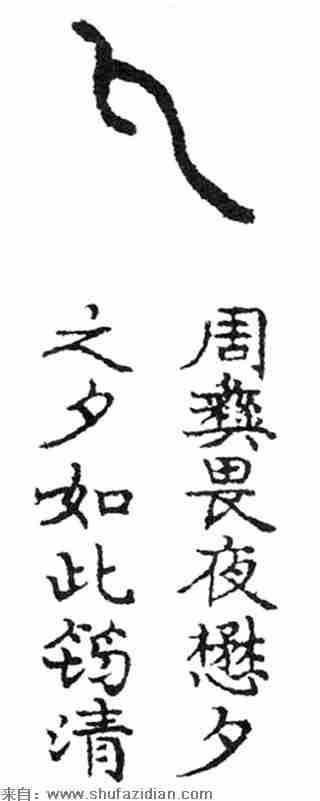 夕
周彝畏夜懋夕
之夕如此筠清
来自：www.shufazidian.com